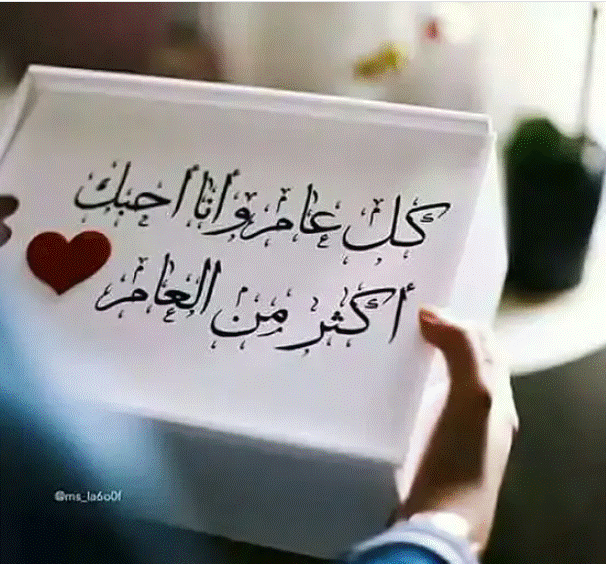 كل عام وأنا أحبك
أكثر من العام
@ms_la6o0f